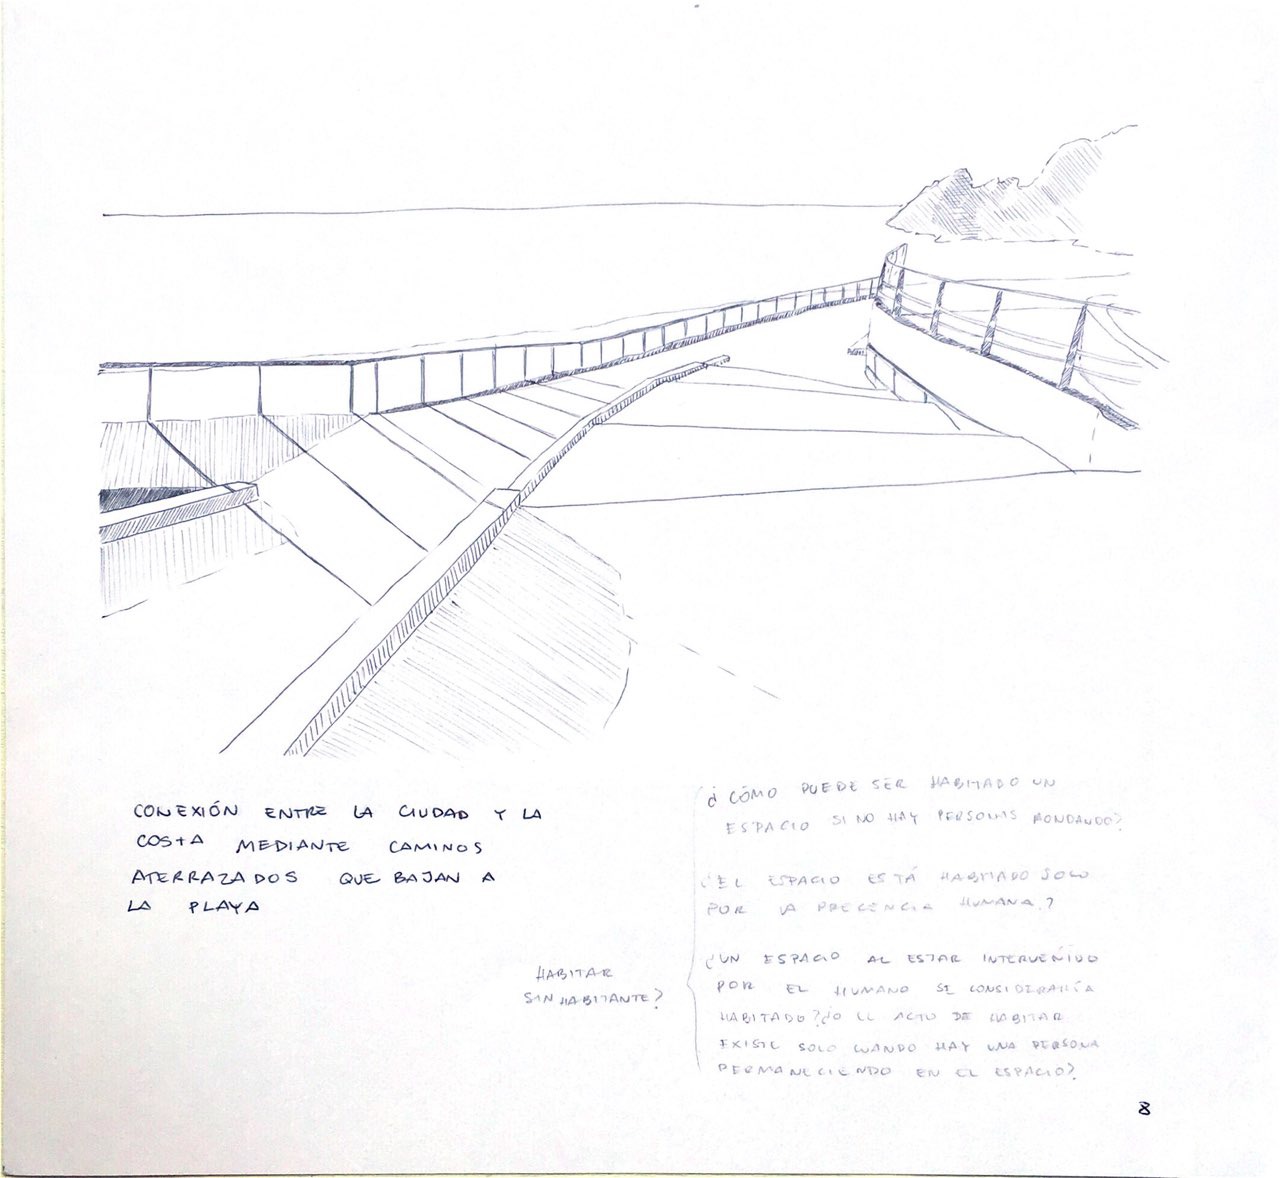 CONEXIÓN ENTRE LA CIUDAD Y LA
COSTA MEDIANTE CAMINOS
ATERRAZADOS QUE BAJAN A
LA PLAYA
HABITAR
SIN HABITANTE?
¿CÓMO PUEDE SER HABITADO UN
ESPACIO SI NO HAY PERSONAS RONDANDO?
¿EL ESPACIO ESTÁ HABITADO SOLO
POR LA PRECENCIA HUMANA?
¿UN ESPACIO AL ESTAR INTERVENIDO
POR EL HUMANO SE CONSIDERARÍA
HABITADO? ¿O EL ACTO DE HABITAR
EXISTE SOLO CUANDO HAY UNA PERSONA
PERMANECIENDO EN EL ESPACIO?
8